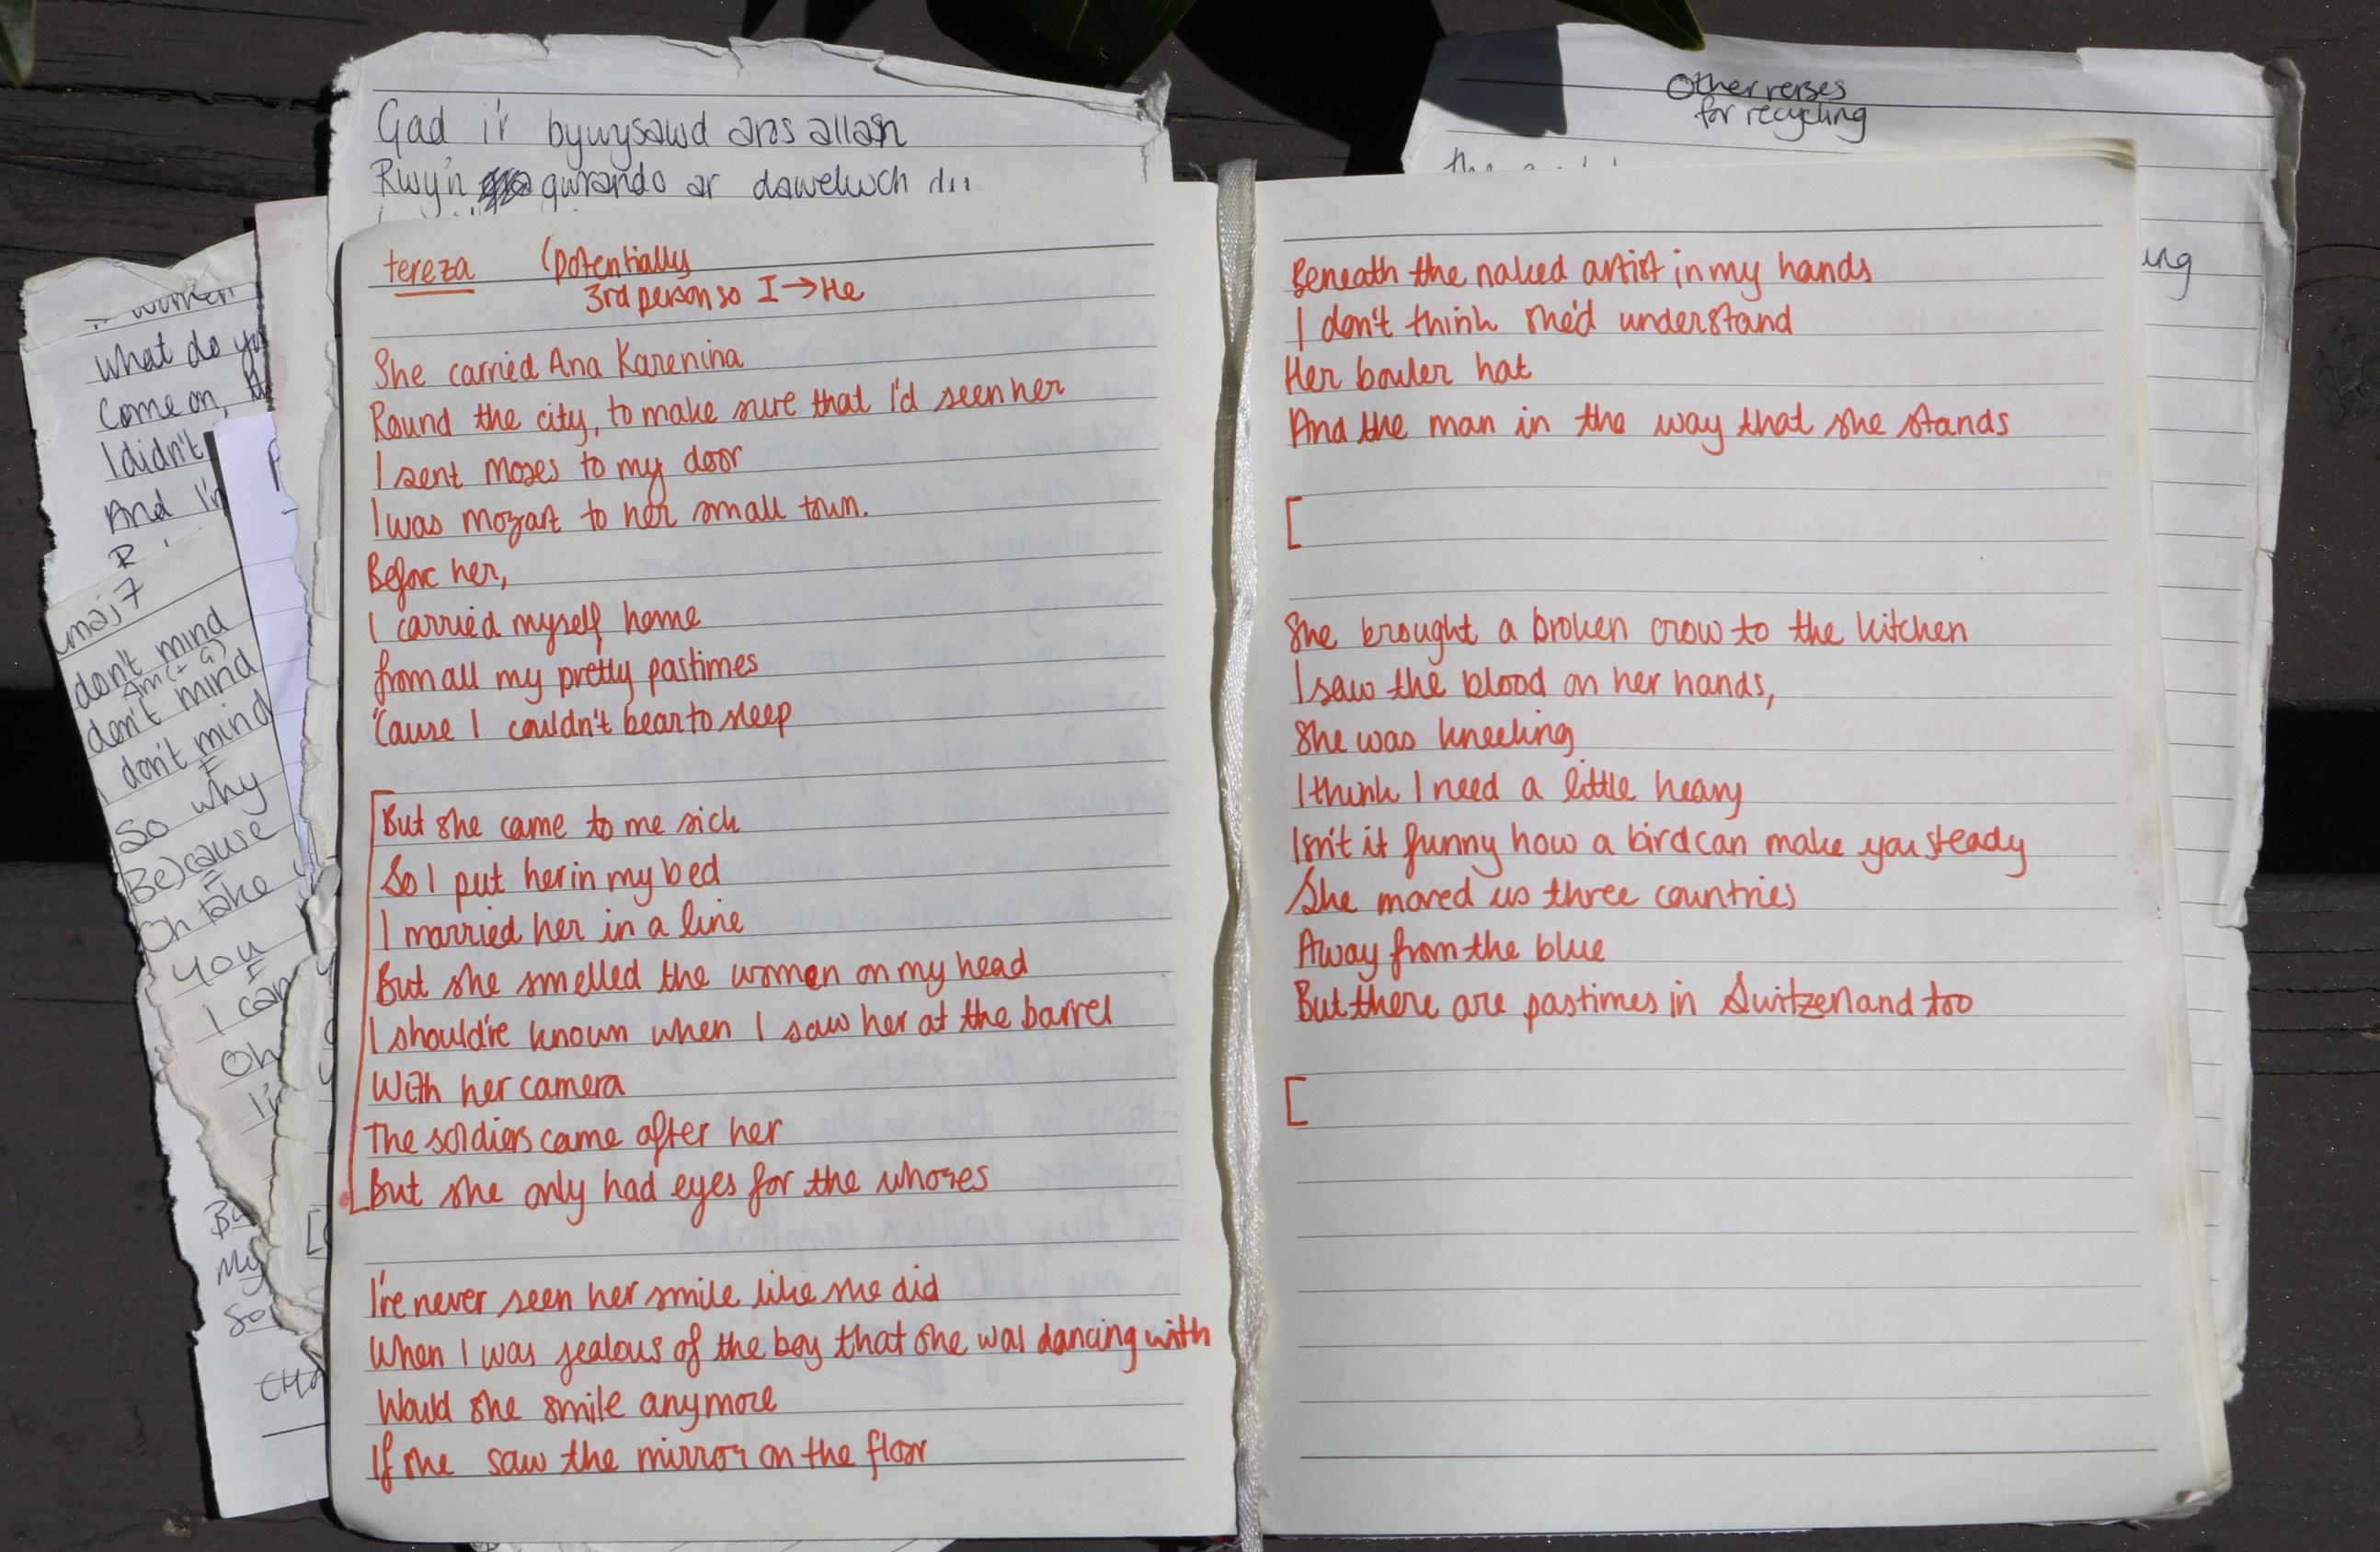 Gad i'r bywysawd aros allan
Rwy'n gwrando ar dawelwch
Other verses
for recycling
women
What do
Come on,
I didn't
And I'm
maj7
don't mind
Am (+ G)
don't mind
don't mind
F
So why
Be)cause
Oh take
you
F
I can
Oh
I'm
My
So
tereza (potentially
3rd person so I → He
She carried Ana Karenina
Round the city, to make sure that I'd seen her
I sent Moses to my door
I was Mozart to her small town.
Before her,
I carried myself home
from all my pretty pastimes
'Cause I couldn't bear to sleep
[But she came to me sick
So I put her in my bed
I married her in a line
But she smelled the women on my head
I should've known when I saw her at the barrel
With her camera
The soldiers came after her
But she only had eyes for the whores
I've never seen her smile like she did
When I was jealous of the boy that she was dancing with
Would she smile anymore
If she saw the mirror on the floor
Beneath the naked artist in my hands
I don't think she'd understand
Her bowler hat
And the man in the way that she stands
[
She brought a broken crow to the kitchen
I saw the blood on her hands,
She was kneeling
I think I need a little heavy
Isn't it funny how a bird can make you steady
She moved us three countries
Away from the blue
But there are pastimes in Switzerland too
[